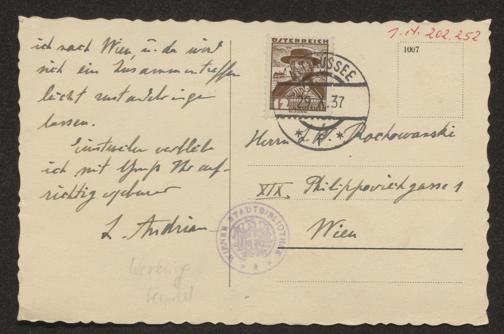 ich nach Wien u. da wird
sich ein Zusammentreffen
leicht zustandebringen
lassen.
Einstweilen verbleibe
ich mit Gruß Ihr auf-
richtig ergebener
L. Andrian
ÖSTERREICH
12
ALTAUSSEE
37
1007
Herrn L. W. Rochowanski
XIX. Philippovichgasse 1
Wien
WIENER STADTBIBLIOTHEK
Werbung